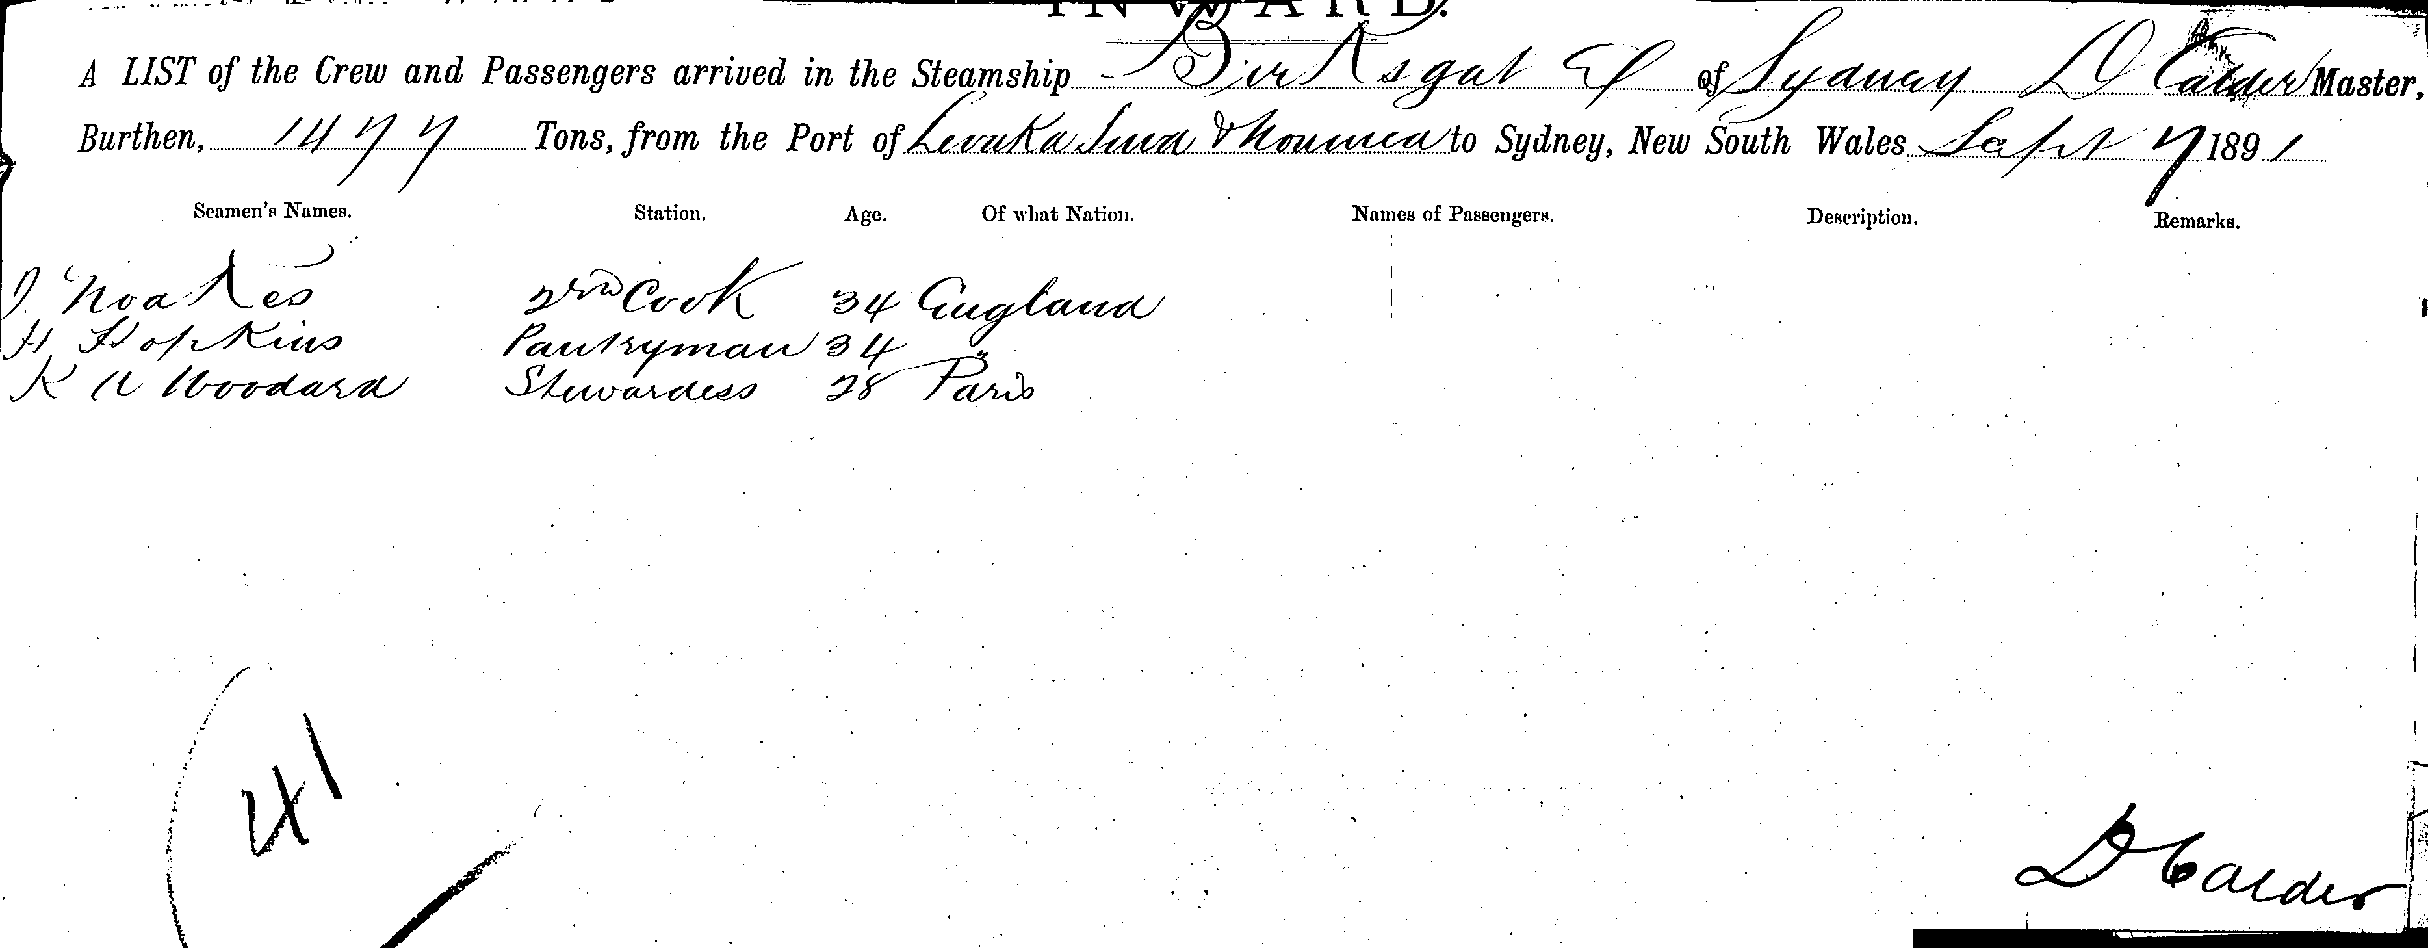 INWARD.
A LIST of the Crew and Passengers arrived in the Steamship Birksgate of Sydney D Calder Master,
Burthen, 1477 Tons, from the Port of Levuka Suva & Noumea to Sydney, New South Wales Sept 7 1891
Seamen's Names. Station. Age. Of what Nation. Names of Passengers. Description. Remarks.
J. Noakes 2nd Cook 34 England
H Hopkins Pantryman 34 "
K A Woodard Stewardess 28 Paris
41
D Calder